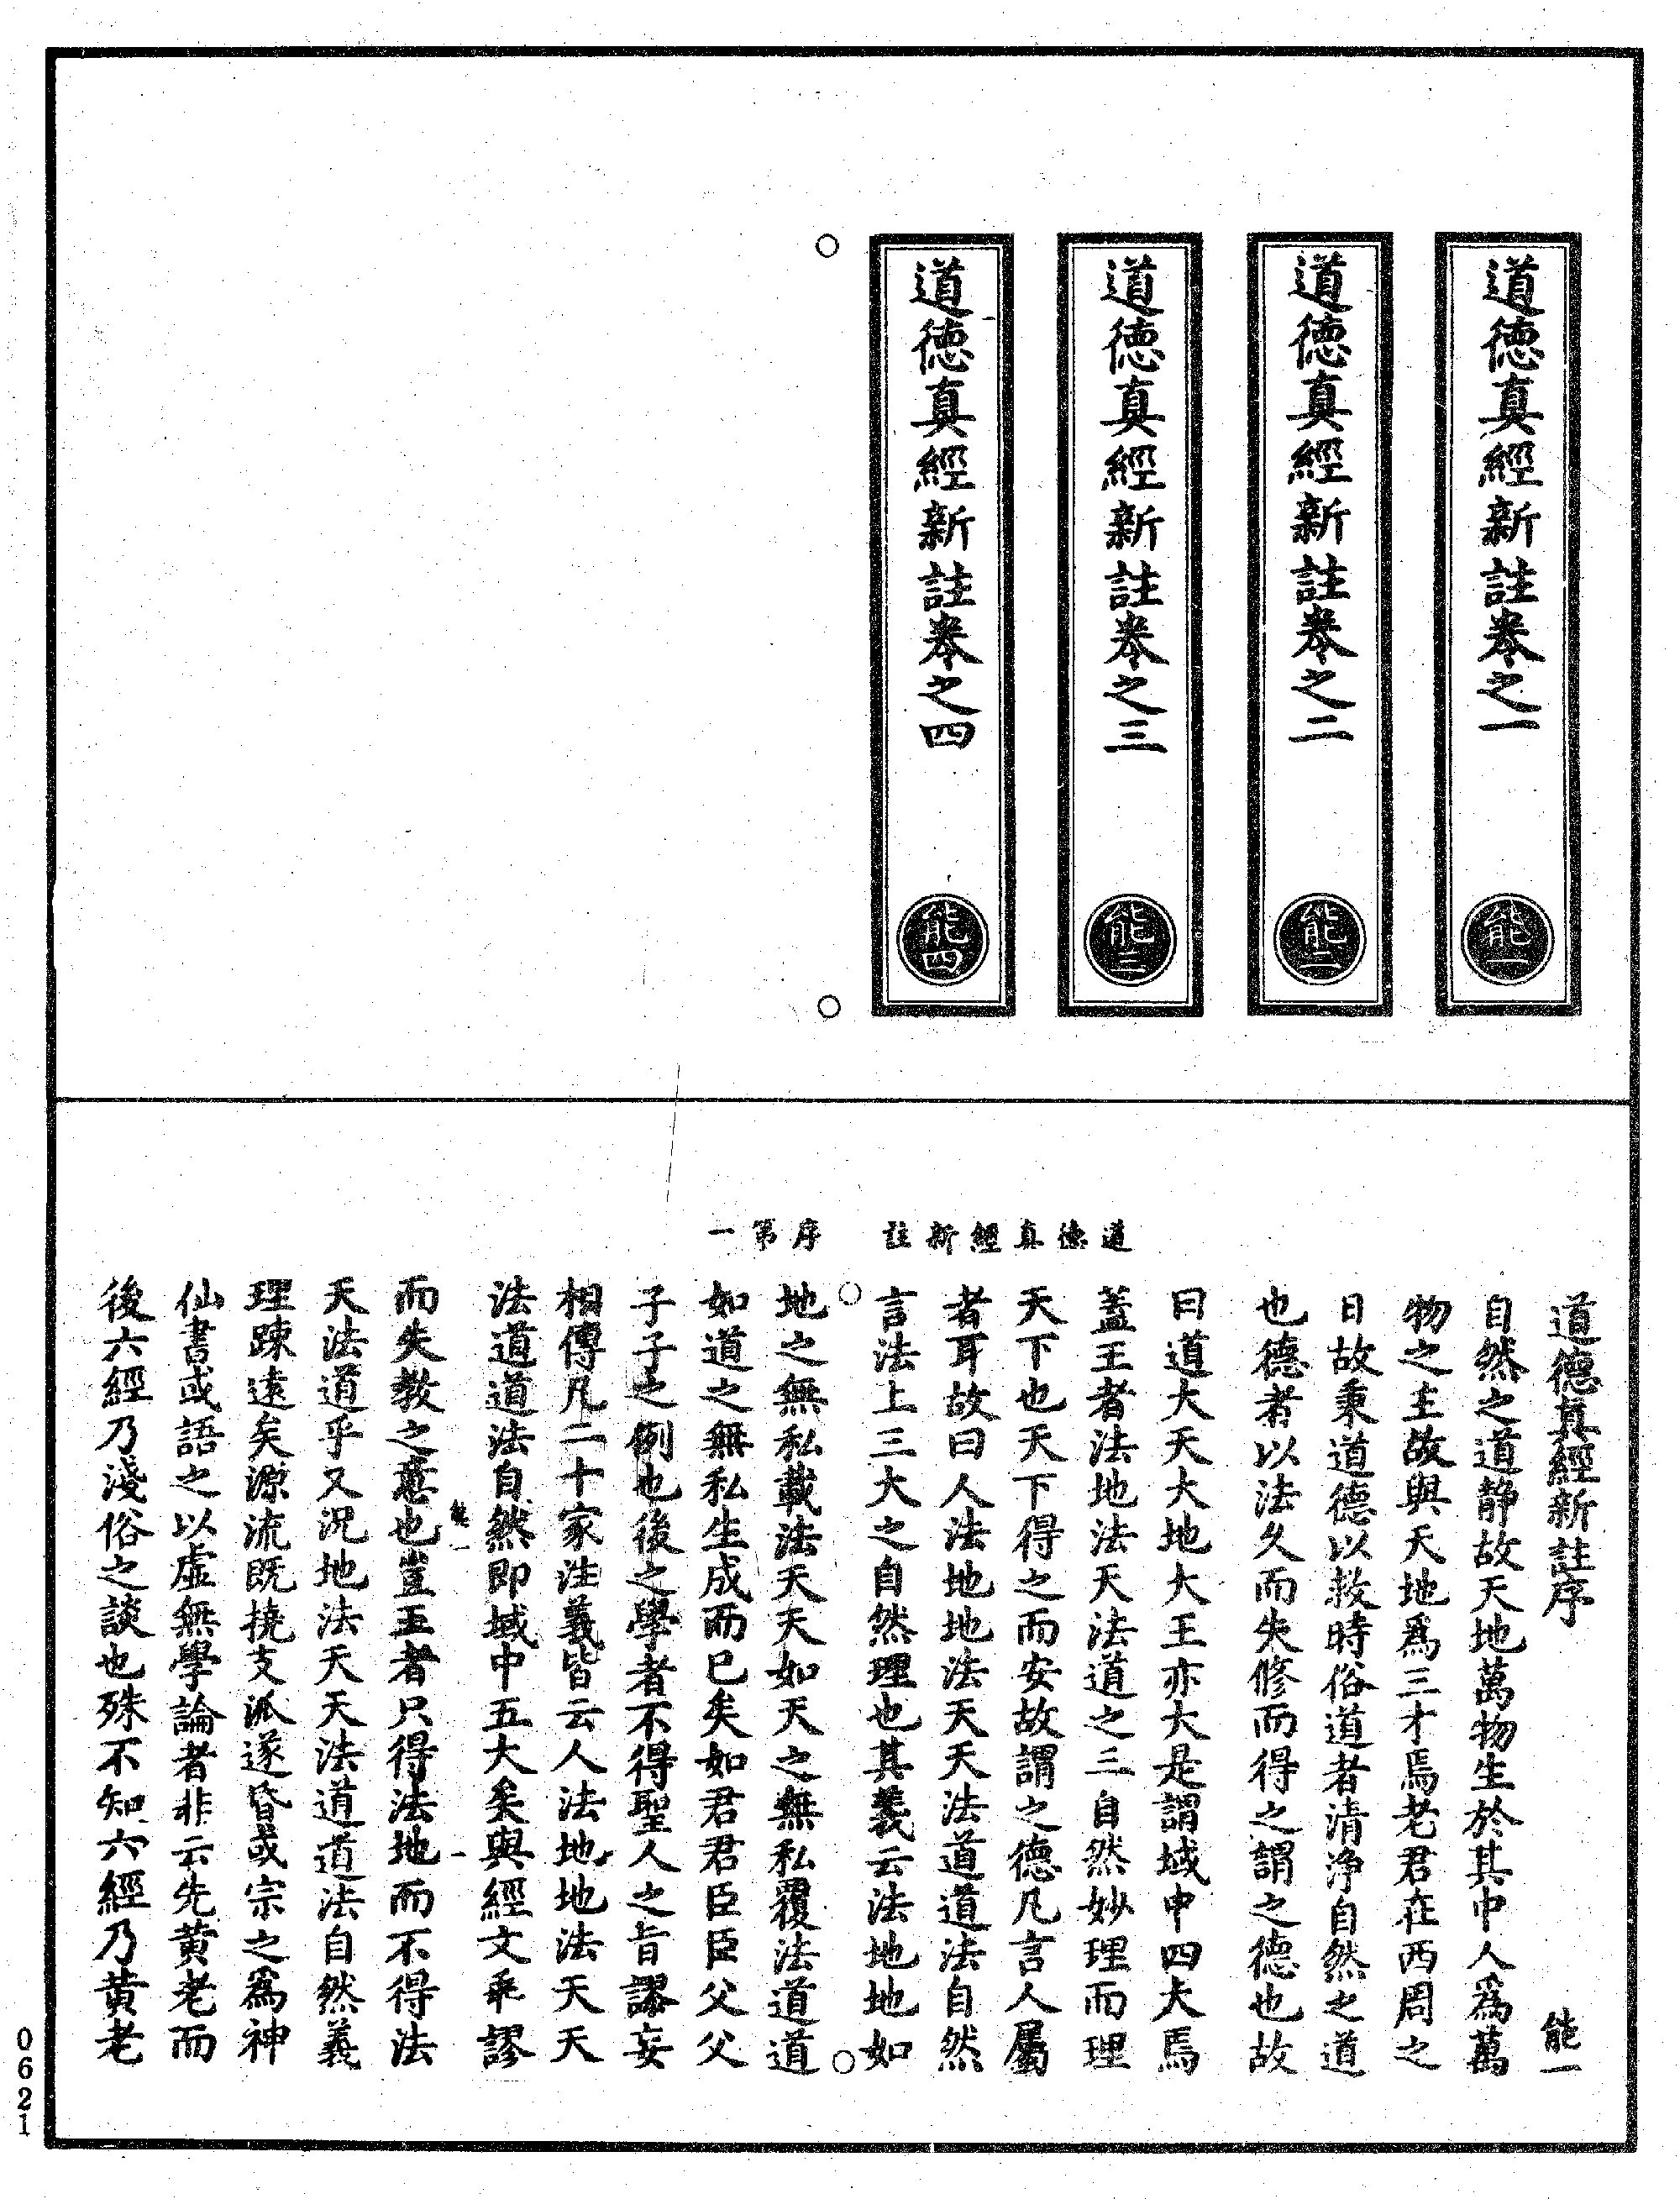 道德真經新註卷之一
能一
道德真經新註卷之二
能二
道德真經新註卷之三
能三
道德真經新註卷之四
能四
道德真經新註　序　第一
道德真經新註序　能一
自然之道静故天地萬物生於其中人爲萬
物之主故與天地爲三才焉老君在西周之
日故秉道德以救時俗道者清淨自然之道
也德者以法久而失修而得之謂之德也故
曰道大天大地大王亦大是謂域中四大焉
蓋王者法地法天法道之三自然妙理而理
天下也天下得之而安故謂之德凡言人屬
者耳故曰人法地地法天天法道道法自然
言法上三大之自然理也其義云法地地如
地之無私載法天天如天之無私覆法道道
如道之無私生成而已矣如君君臣臣父父
子子之例也後之學者不得聖人之旨謬妄
相傳凡二十家注義皆云人法地地法天天
法道道法自然即域中五大矣與經文乖謬
能一　一
而失教之意也豈王者只得法地而不得法
天法道乎又況地法天天法道道法自然義
理踈遠矣源流既撓支派遂昏或宗之爲神
仙書或語之以虛無學論者非云先黄老而
後六經乃淺俗之談也殊不知六經乃黄老
0621